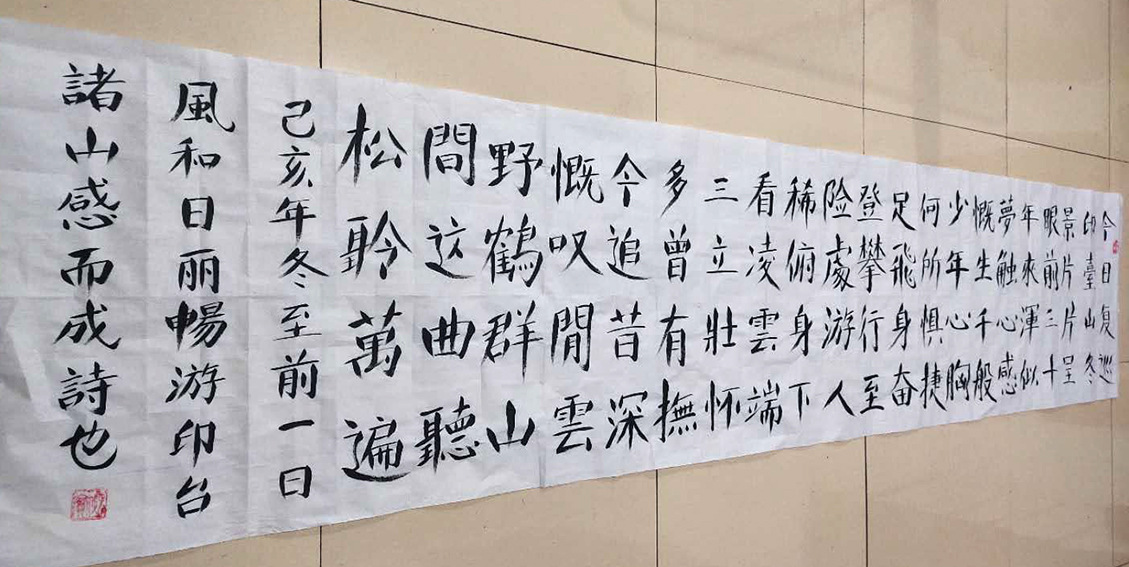 今日复巡
印臺山冬
景片片呈
眼前三十
年來渾似
夢触心感
慨生千般
少年心胸
何所惧捷
足飛身奋
登攀行至
险處游人
稀俯身下
看凌雲端
三立壯怀
多曾有撫
今追昔深
慨叹閒雲
野鶴群山
間这曲聽
松聆萬遍
己亥年冬至前一日
風和日丽暢游印台
諸山感而成詩也